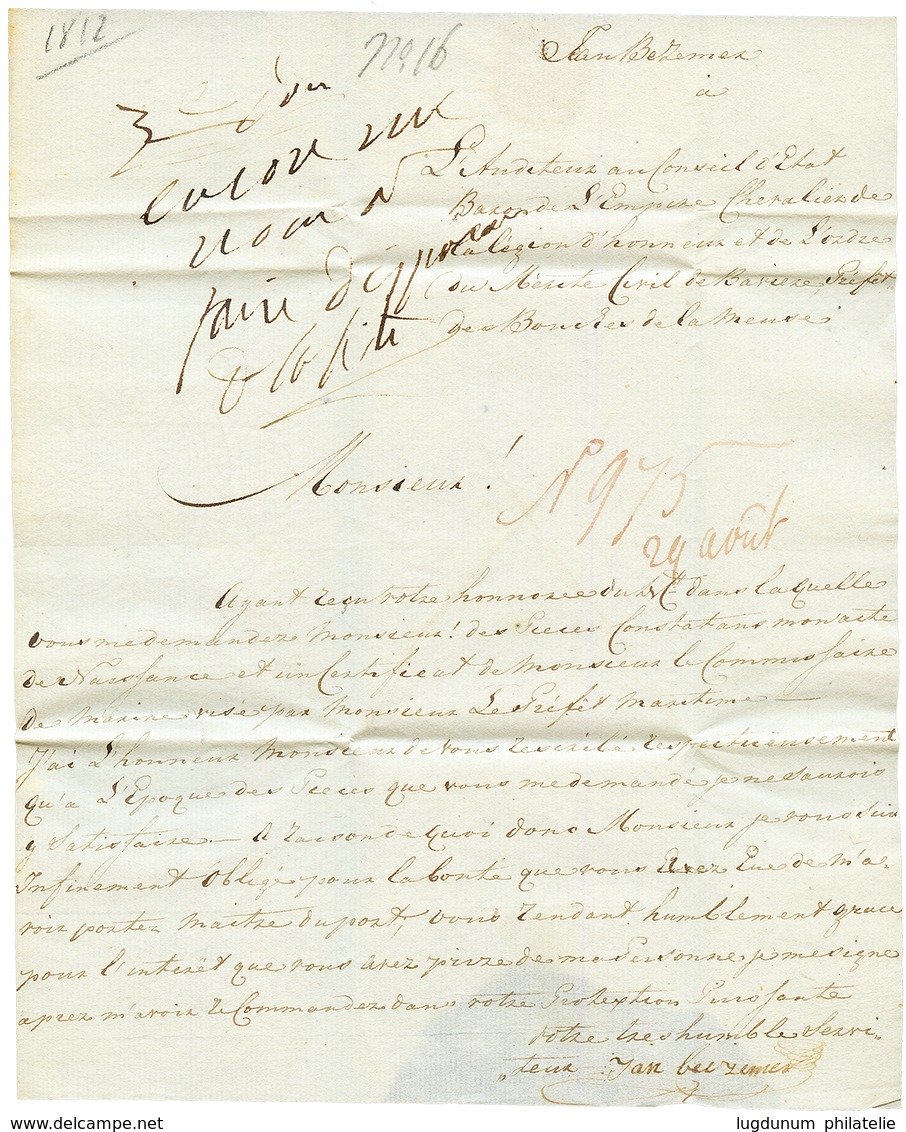 1812
No. 16
Jan Bezemer
a
L'Auditeur au Conseil d'Etat
Baron de L'Empire Chevalier de
La légion d'honneur et de L'ordre
du Merite Civil de Baviere Préfet
des Bouches de la Meuse
encore une
faire
Monsieur !
N 975
29 août
Ayant reçu votre honnoree du Ct. dans laquelle
vous me demandez Monsieur ! des Pieces Constatans mon acte
de Naissance et un Certificat de Monsieur le Commissaire
de Marine visé par Monsieur Le Préfet maritime —
J'ai L'honneur Monsieur de vous respectueusement
qu'a L'Epoque des Pieces que vous me demandé je ne saurois
y Satisfaire. — A raison de quoi donc Monsieur je vous suis
Infiniment Obligé pour la bonté que vous Avez Eue de m'a-
voir porter Maitre du port, vous rendant humblement grace
pour l'interèt que vous avez prize de ma Personne, je me signe
aprez m'avoir reCommandez dans votre Protextion Puissante
votre tres humble Servi„
„teur Jan bezemer
lugdunum philatelie